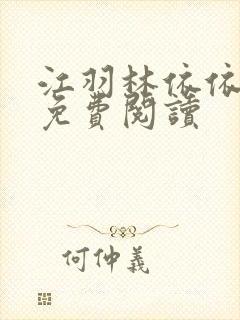 江羽林依依
免費閱讀
何仲義